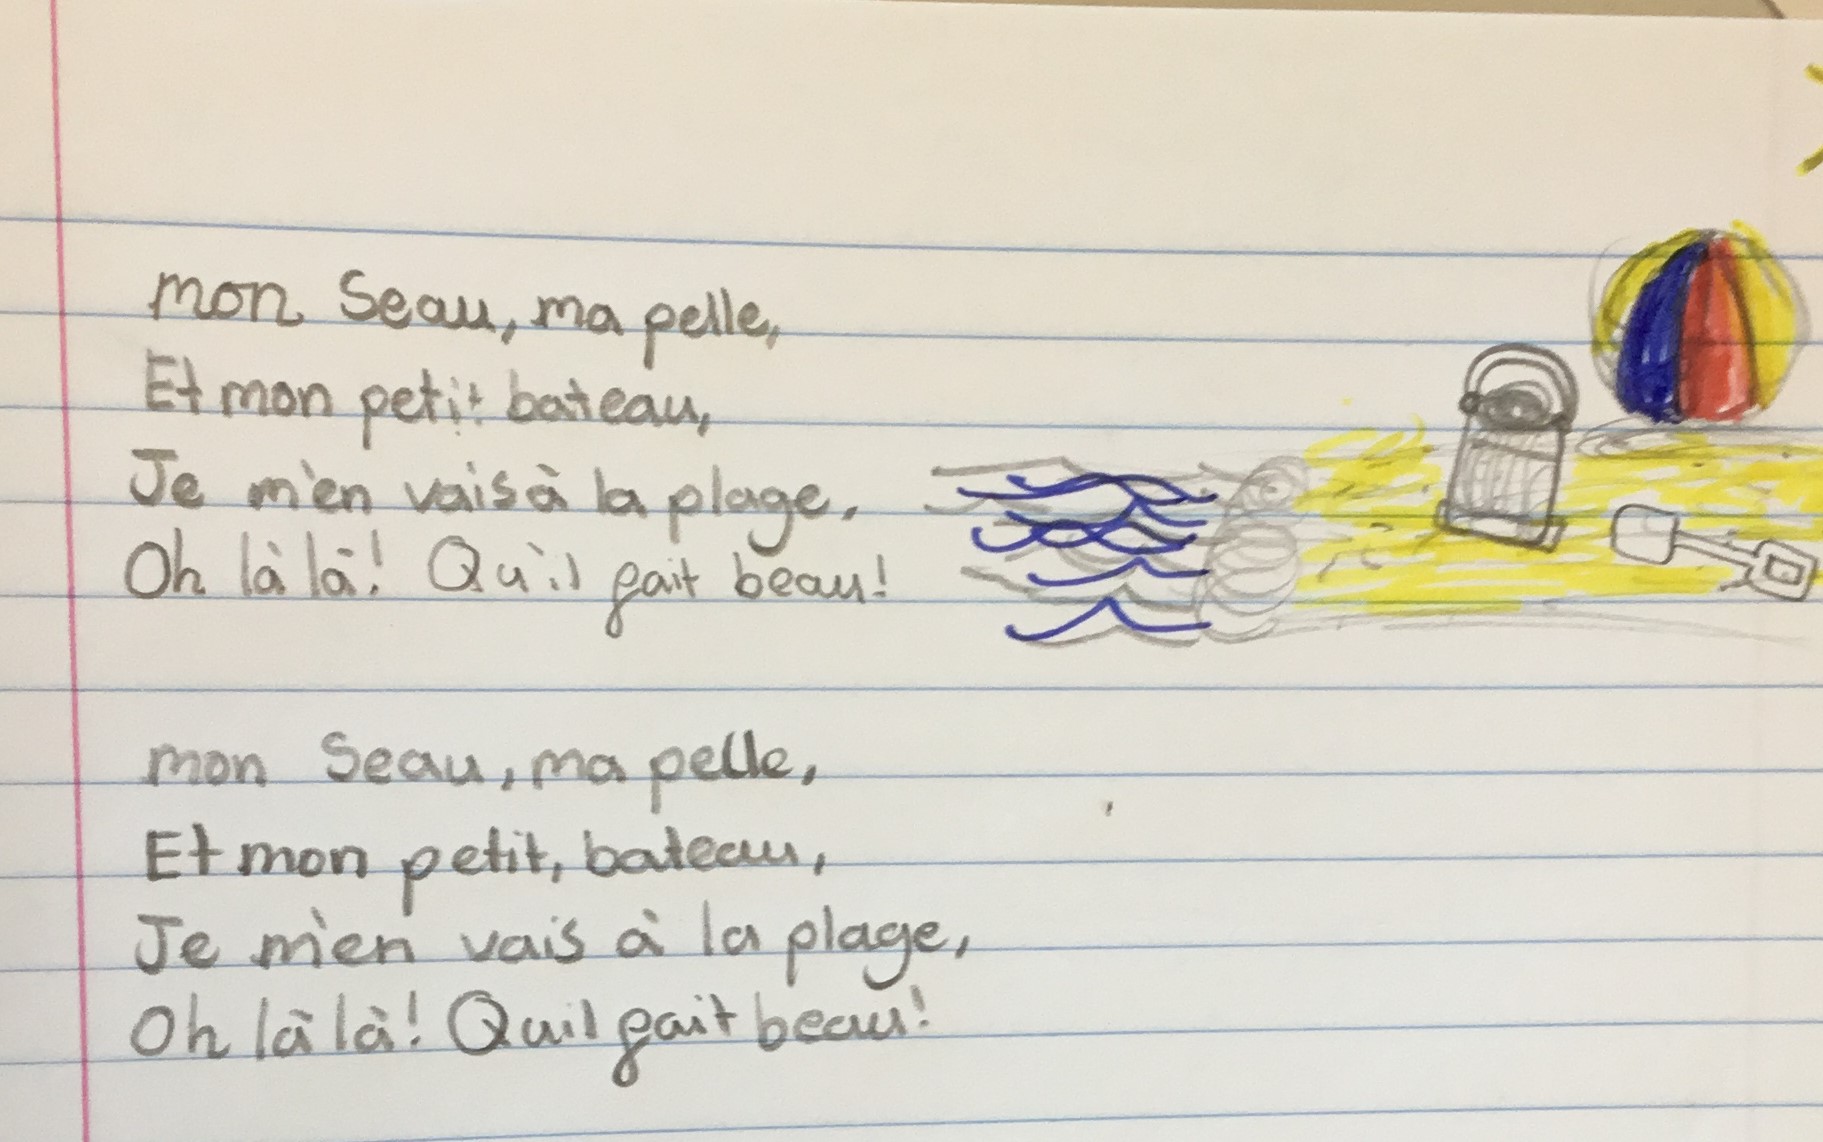 mon Seau, ma pelle,
Et mon petit bateau,
Je m'en vais à la plage,
Oh là là! Qu'il fait beau!
mon Seau, ma pelle,
Et mon petit, bateau,
Je m'en vais à la plage,
Oh là là! Quil fait beau!